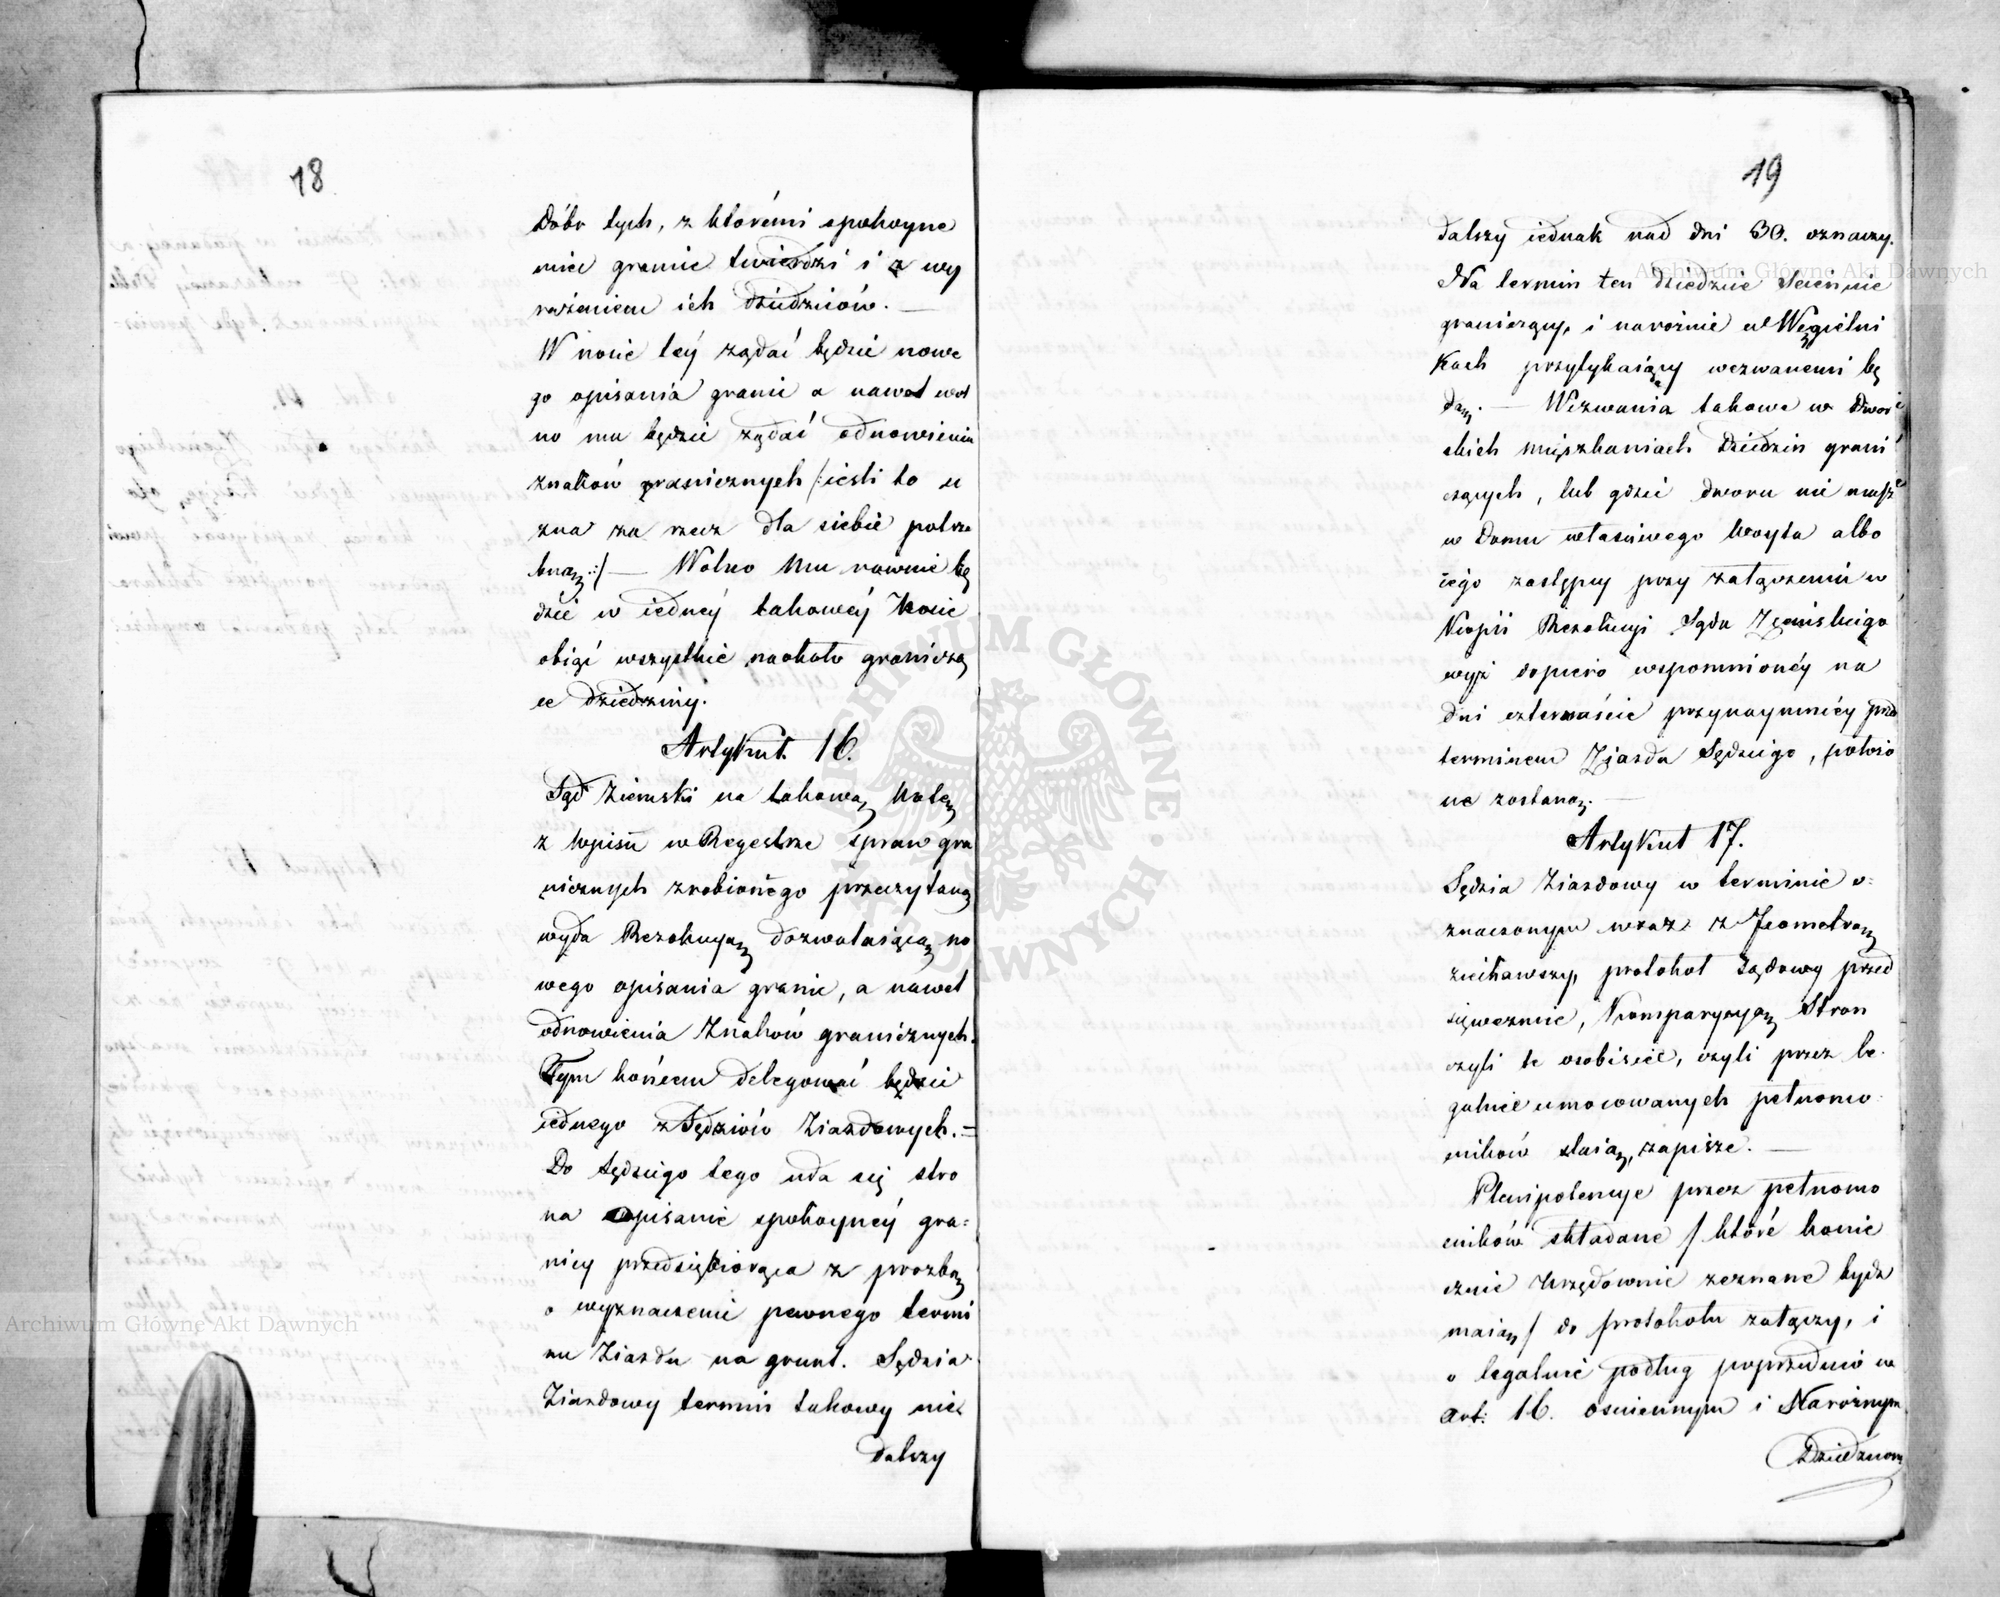 18
Dóbr tych, z któremi spokoyne
mieć granice twierdzi i z wy
rażeniem ich dziedziców. —
W nocie téy żądać będzie nowe
go opisania granic a nawet wol
no mu będzie żądać odnowienia
znaków granicznych /:ieśli to u
zna za rzecz dla siebie potrze
bną:/ — Wolno mu rownie bę
dzie w iednéy takowéy Nocie
obiąć wszystkie naokoło graniczą
ce dziedziny.
Artykuł 16.
Sąd Ziemski na takową Notę
z wpisu w Regestrze spraw gra
nicznych zrobionego przeczytaną
wyda Rezolucyą dozwalaiącą no
wego opisania granic, a nawet
odnowienia Znaków granicznych.
Tym końcem delegować będzie
iednego z Sędziów Ziazdowych. =
Do Sędziego tego uda się stro
na opisanie spokoynéy gra=
nicy przedsiębiorąca z prozbą
o wyznaczenie pewnego termi
nu Ziazdu na grunt. Sędzia
Ziazdowy termin takowy nie
dalszy
19
dalszy iednak nad dni 30. oznaczy.
Na termin ten dziedzice Sciennie
graniczący, i narożnie w Węgielni
kach przytykaiący wezwanemi bę
dą. — Wezwania takowe w Dwor
skich mięszkaniach Dziedzin grani
czących, lub gdzie dworu nie masz
w Domu właściwego Woyta albo
iego zastępcy przy załączeniu w
Kopii Rezolucyi Sądu Ziemskiego
wyż dopiero wspomnionéy na
dni czternaście przynaymniéy przed
terminem Zjazdu Sędziego, położo
ne zostaną. —
Artykuł 17.
Sędzia Ziazdowy w terminie o=
znaczonym wraz z Jeometrą
ziechawszy, protokół Sądowy przed
sięwezmie, Komparycyą Stron
czyli te osobiście, czyli przez le
galnie umocowanych pełnomo
cników staią, zapisze. —
Plenipotencye przez pełnomo
cników składane / które konie
cznie Urzędownie zeznane bydź
maią / do protokołu załączy, i
o legalnie podług poprzednio w
art: 16. osciennym i Narożnym
Dziedzicom
Archiwum Główne Akt Dawnych
Archiwum Główne Akt Dawnych
ARCHIWUM GŁÓWNE AKT DAWNYCH